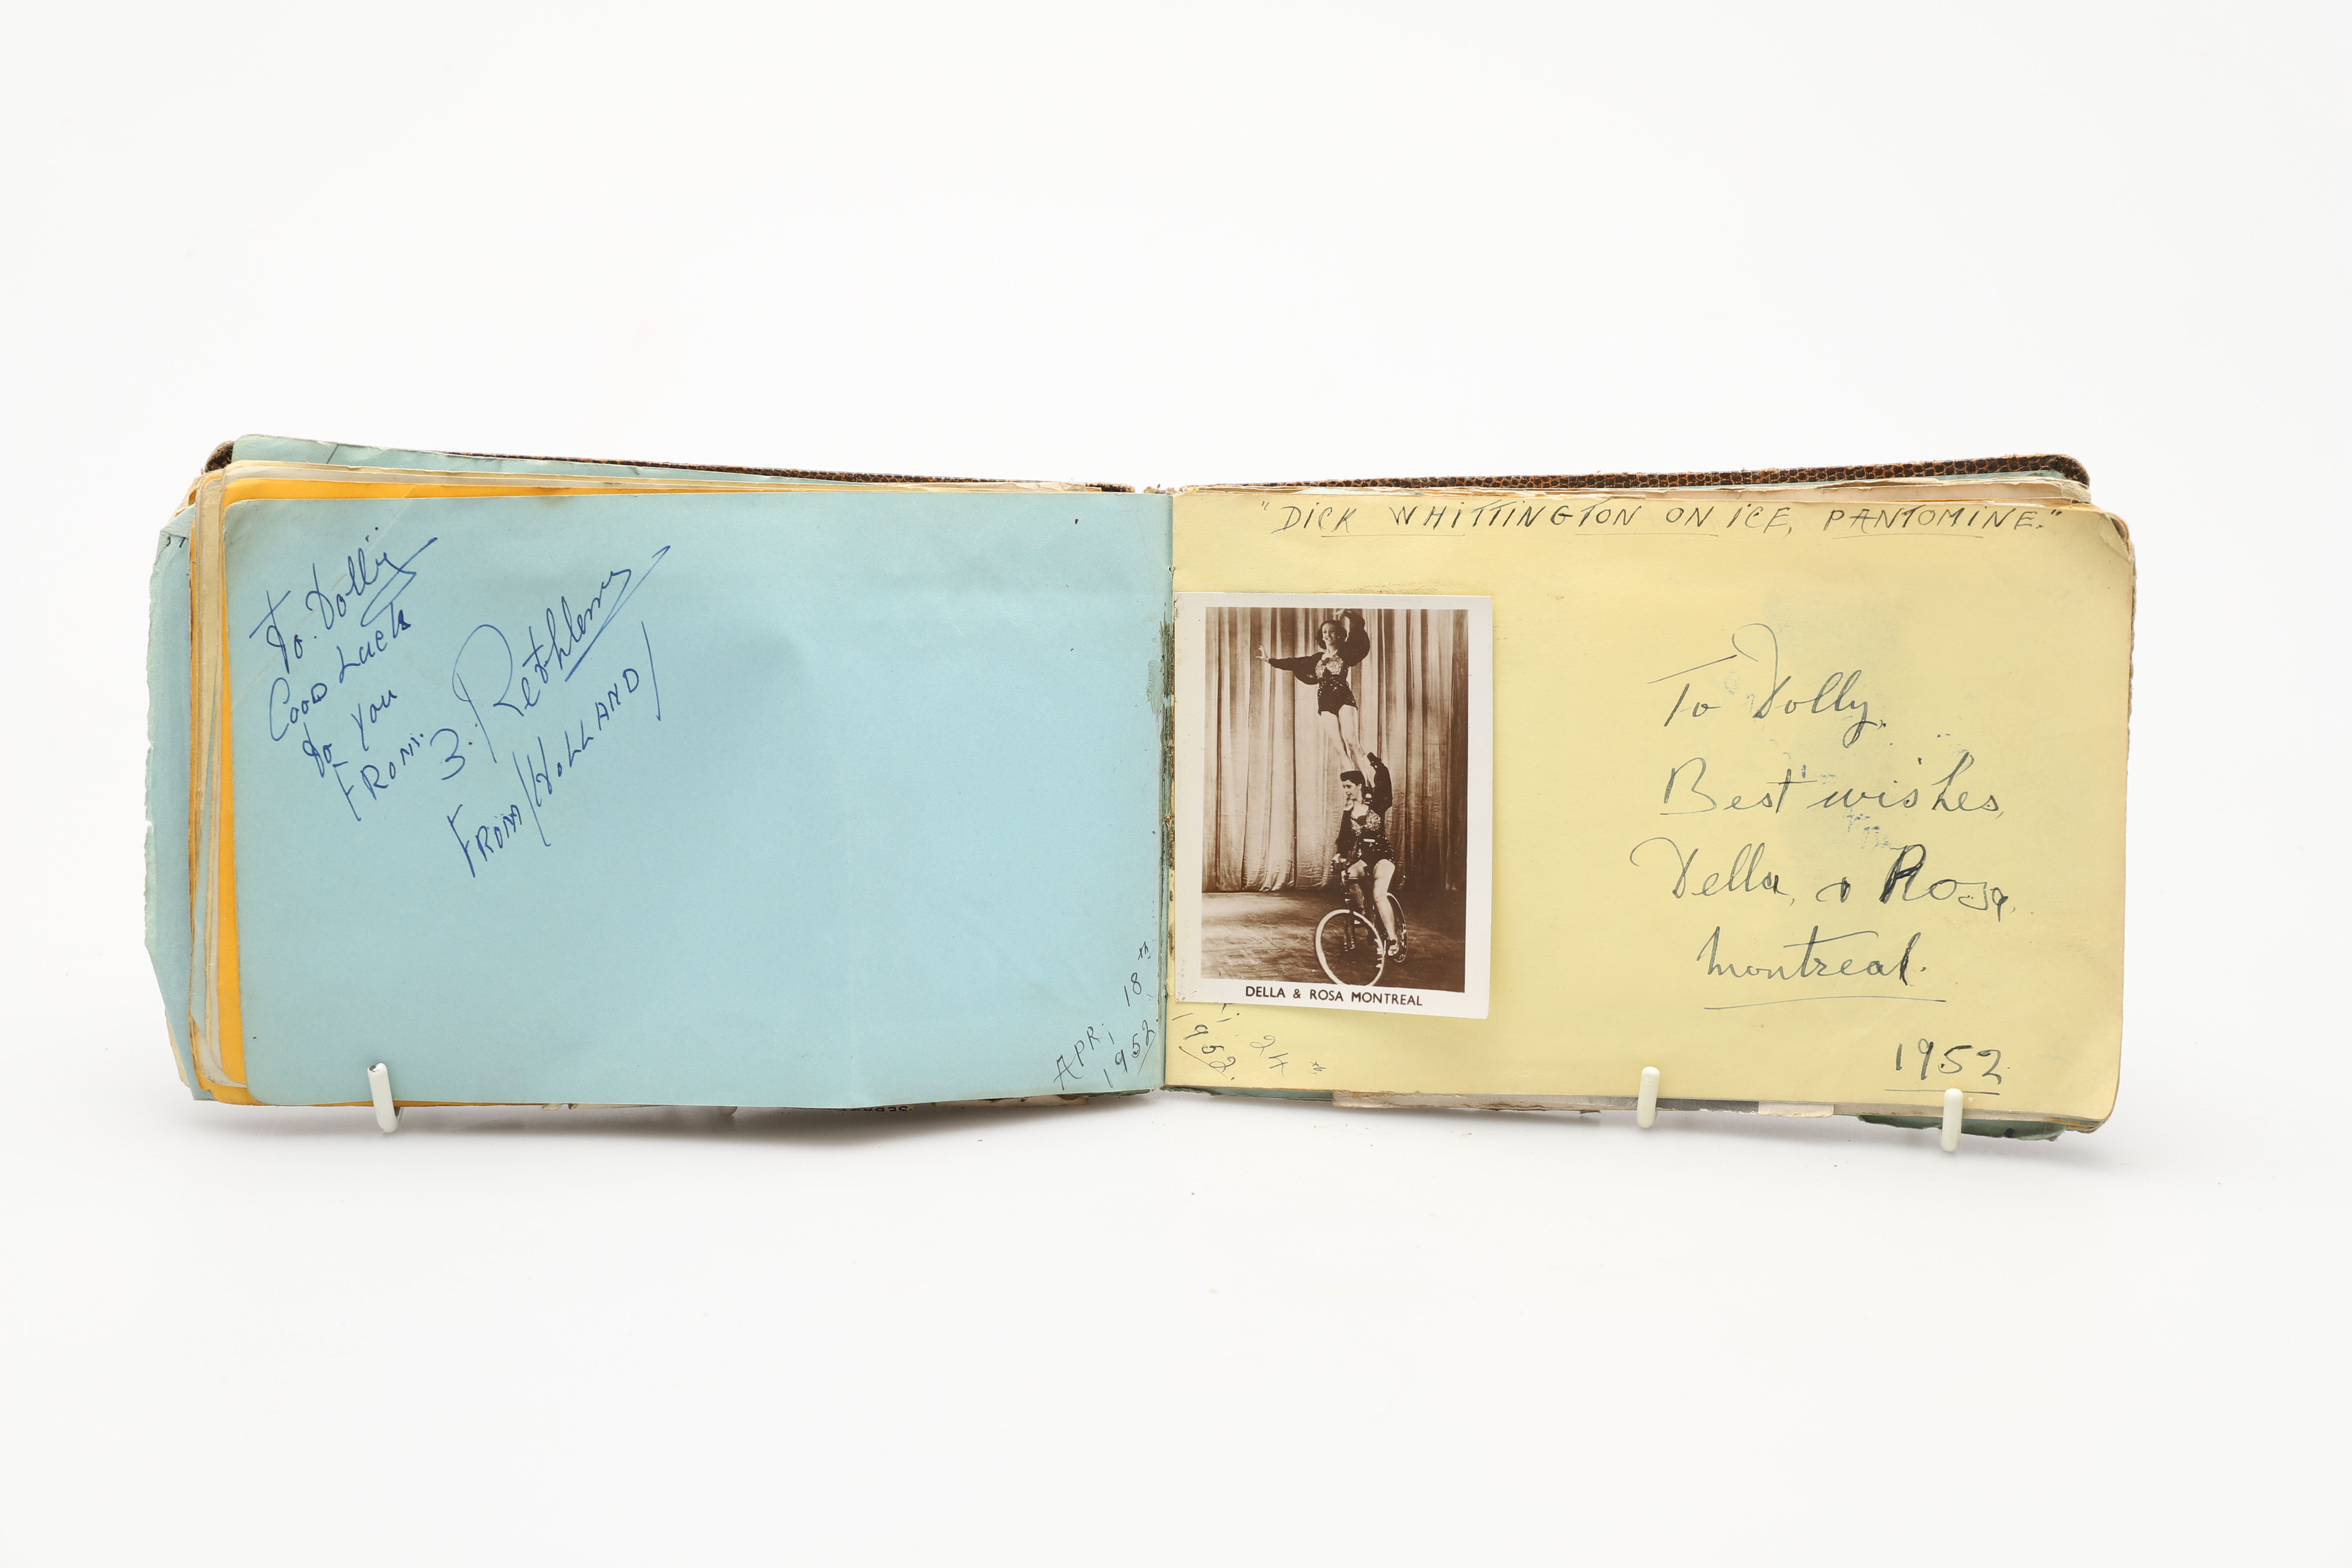 To. Dolly
Good Luck
to you
FROM.
3. Rethlems
FROM (HOLLAND)
APR. 18th
1952.
"DICK WHITTINGTON ON ICE, PANTOMINE."
DELLA & ROSA MONTREAL
To Dolly,
Best wishes,
Della, & Rosa,
Montreal.
1952
24th
1952.